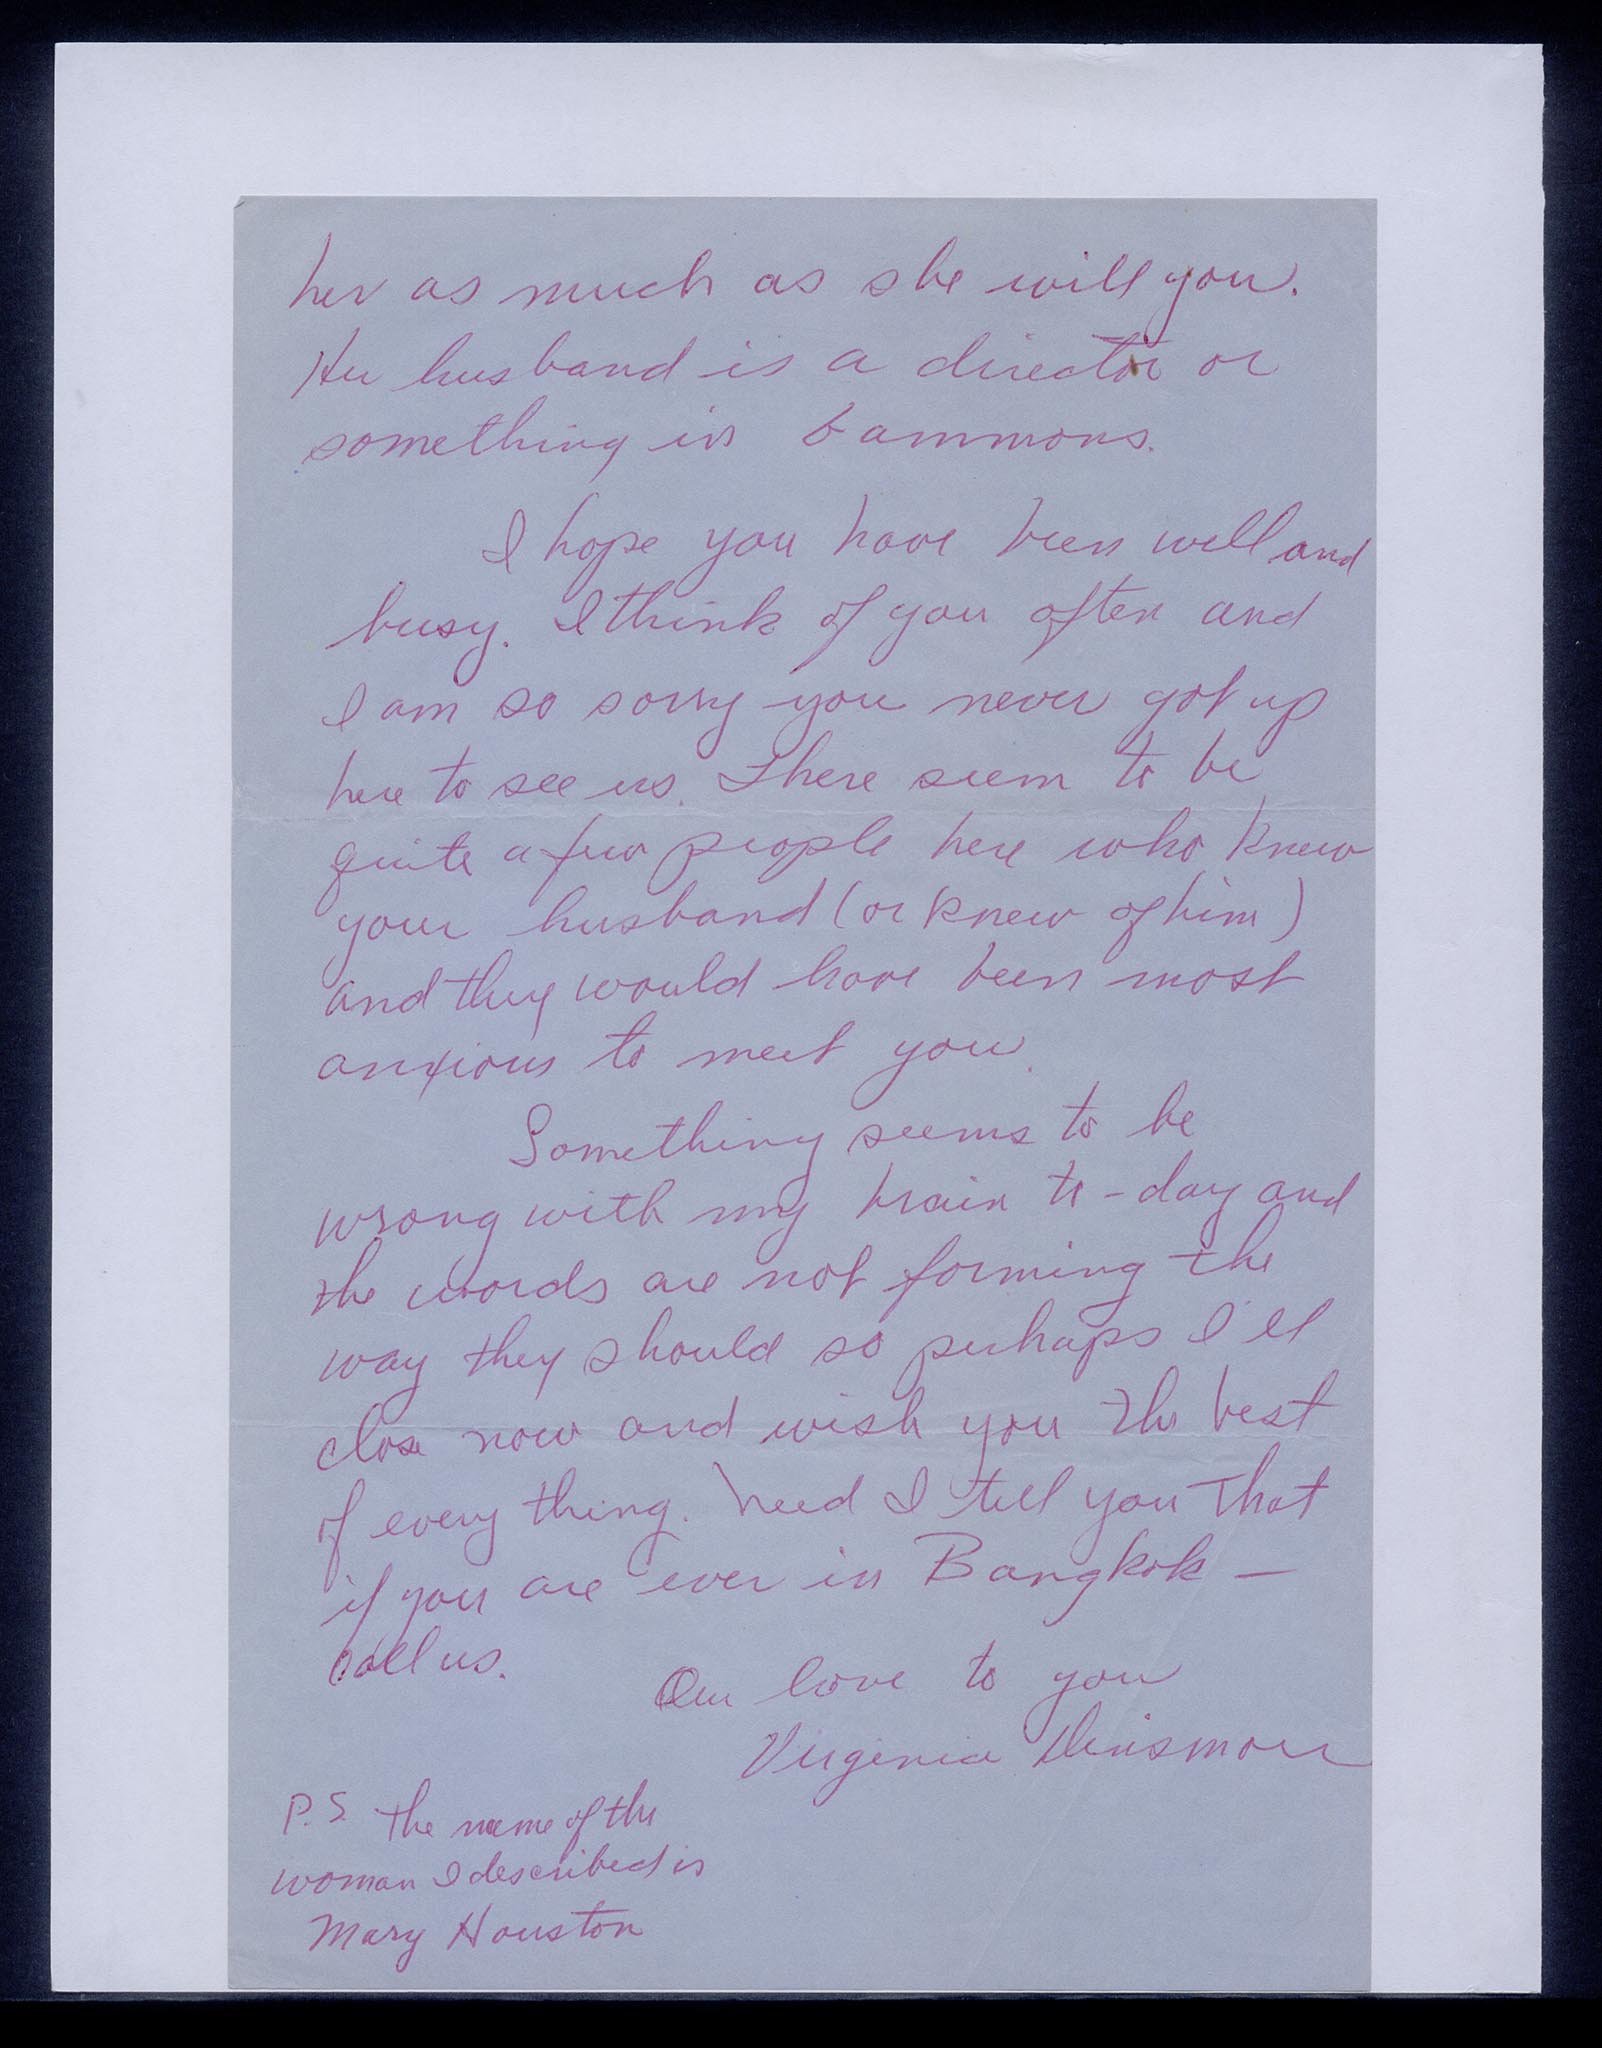 her as much as she will you.
Her husband is a director or
something in Gammons.
I hope you have been well and
busy. I think of you often and
I am so sorry you never got up
here to see us. There seem to be
quite a few people here who knew
your husband (or knew of him)
and they would have been most
anxious to meet you.
Something seems to be
wrong with my brain to-day and
the words are not forming the
way they should so perhaps I'll
close now and wish you the best
of every thing. Need I tell you that
if you are ever in Bangkok —
call us.
Our love to you
Virginia Dinsmore
P.S. The name of the
woman I described is
Mary Houston